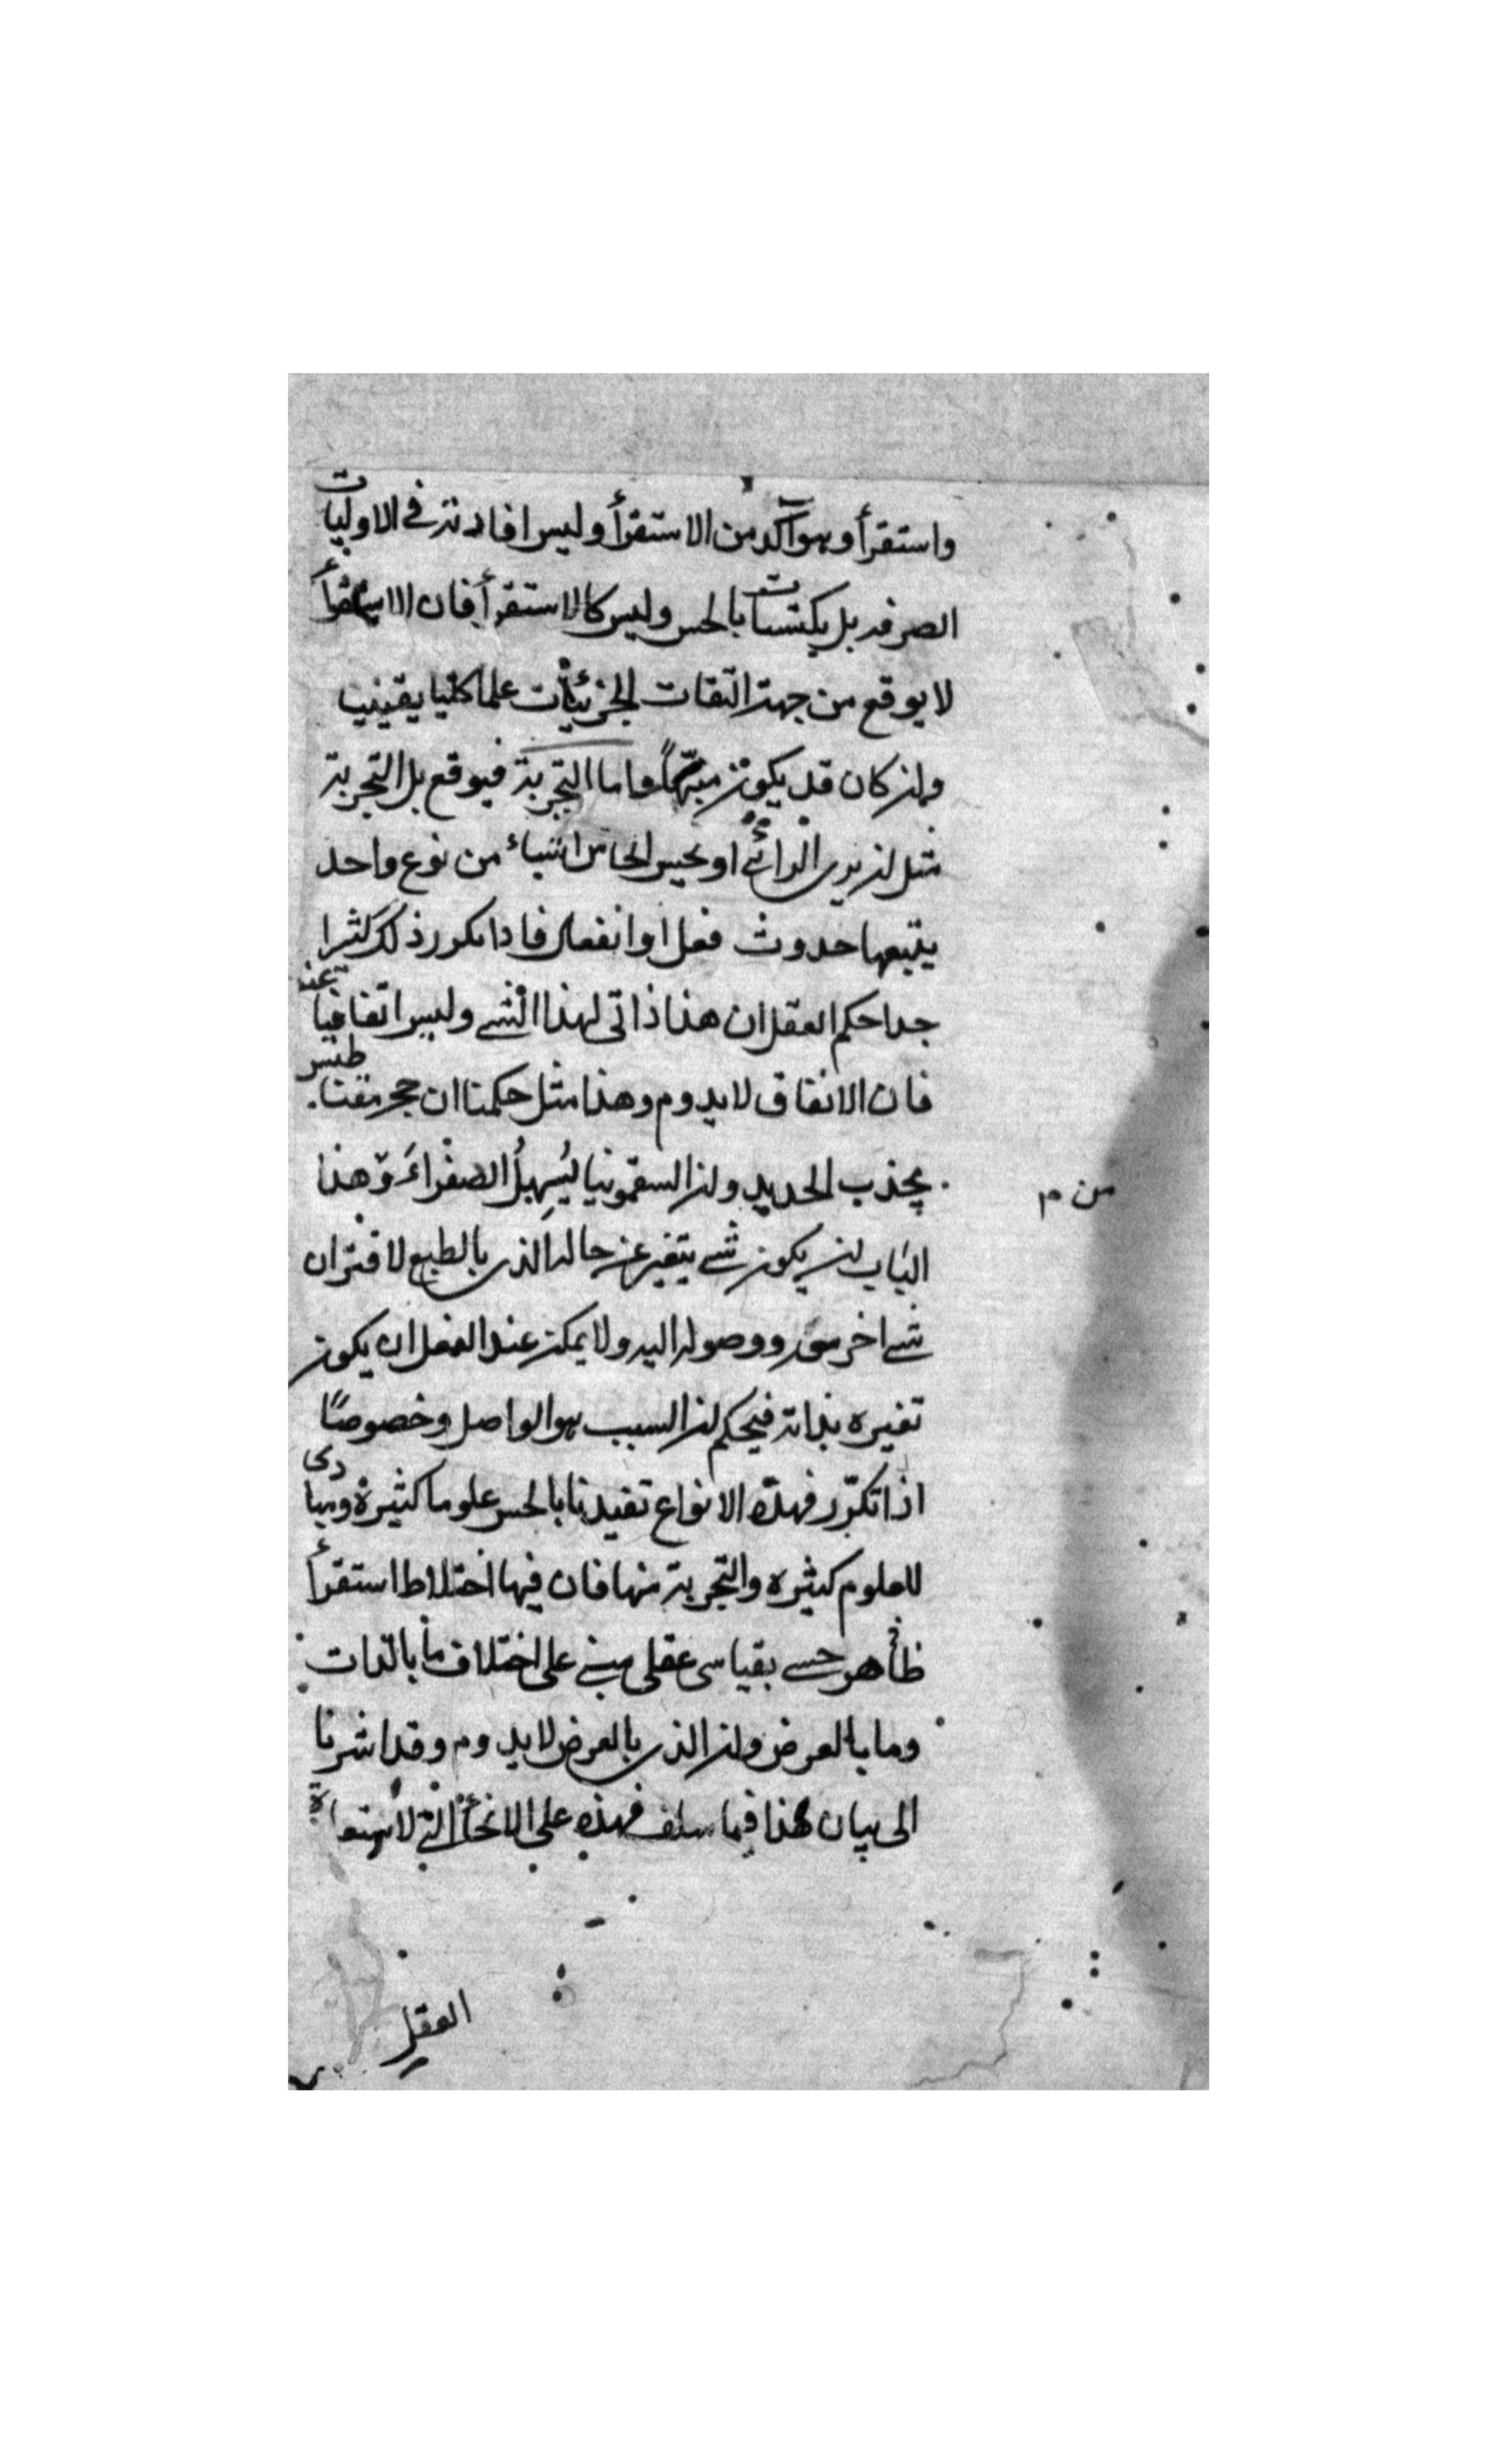 واستقرأ وهو آكد من الاستقرأ وليس افادته في الاوليات
الصرفه بل بمكتسبات بالحس وليس كالاستقرأ فان الاستقرأ
لا يوقع من جهة التقات الجزئيات علما كليا يقينيا
وان كان قد يكون منبها واما التجربة فيوقع بل التجربة
مثل ان يرى الرائي او يحس الحاس اشياء من نوع واحد
يتبعها حدوث فعل او انفعال فاذا تكرر ذلك كثيرا
جدا حكم العقل ان هذا ذاتى لهذا الشى وليس اتفاقيا عنه
فان الاتفاق لا يدوم وهذا مثل حكمنا ان حجر مقناطيس
يجذب الحديد وان السقمونيا يُسهِلُ الصفراءَ وهذا
من م
الباب ان يكون شى يتغير عن حاله الذى بالطبع لاقتران
شى اخر ووصوله اليه ولا يمكن عند العقل ان يكون
تغيره بذاته فيحكم ان السبب هو الواصل وخصوصًا
اذا تكرّر فهذه الانواع تفيدنا بالحس علوما كثيرة ومبادى
للعلوم كثيره والتجربة منها فان فيها اختلاط استقرأ
ظأهر حسى بقياسى عقلى مبنى على اختلاف ما بالذات
وما بالعرض وان الذى بالعرض لا يدوم وقد اشرنا
الى بيان هذا فيما سلف فهذه على الانحأ التى لاستعانة
العقل